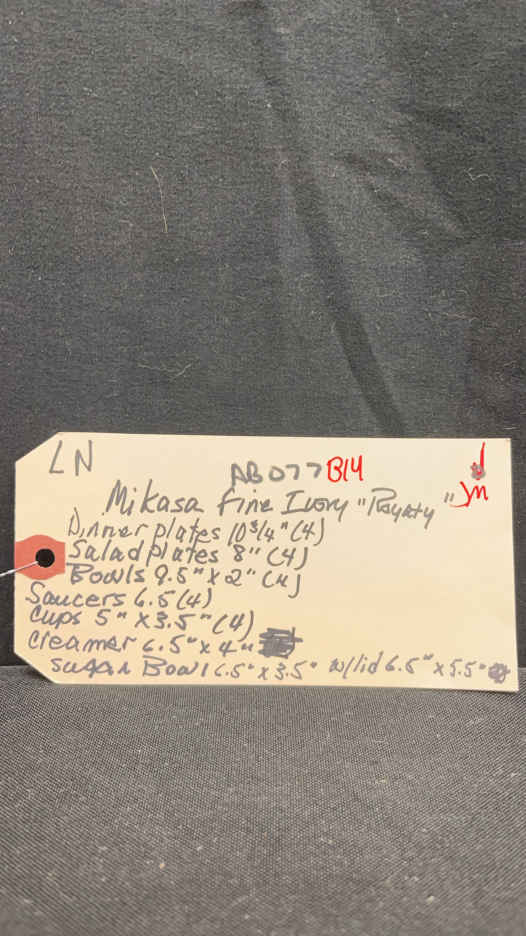 LN
ABO77 B14
Mikasa Fine Ivory "Royalty" Jn
Dinner plates 10 3/4" (4)
Salad plates 8" (4)
Bowls 9.5" x 2" (4)
Saucers 6.5 (4)
Cups 5" x 3.5" (4)
Creamer 6.5" x 4"
Sugar Bowl 6.5" x 3.5" w/lid 6.5" x 5.5"